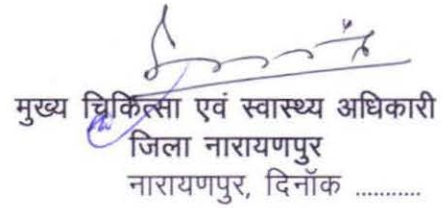 मुख्य चिकित्सा एवं स्वास्थ्य अधिकारी
जिला नारायणपुर
नारायणपुर, दिनॉक ..........